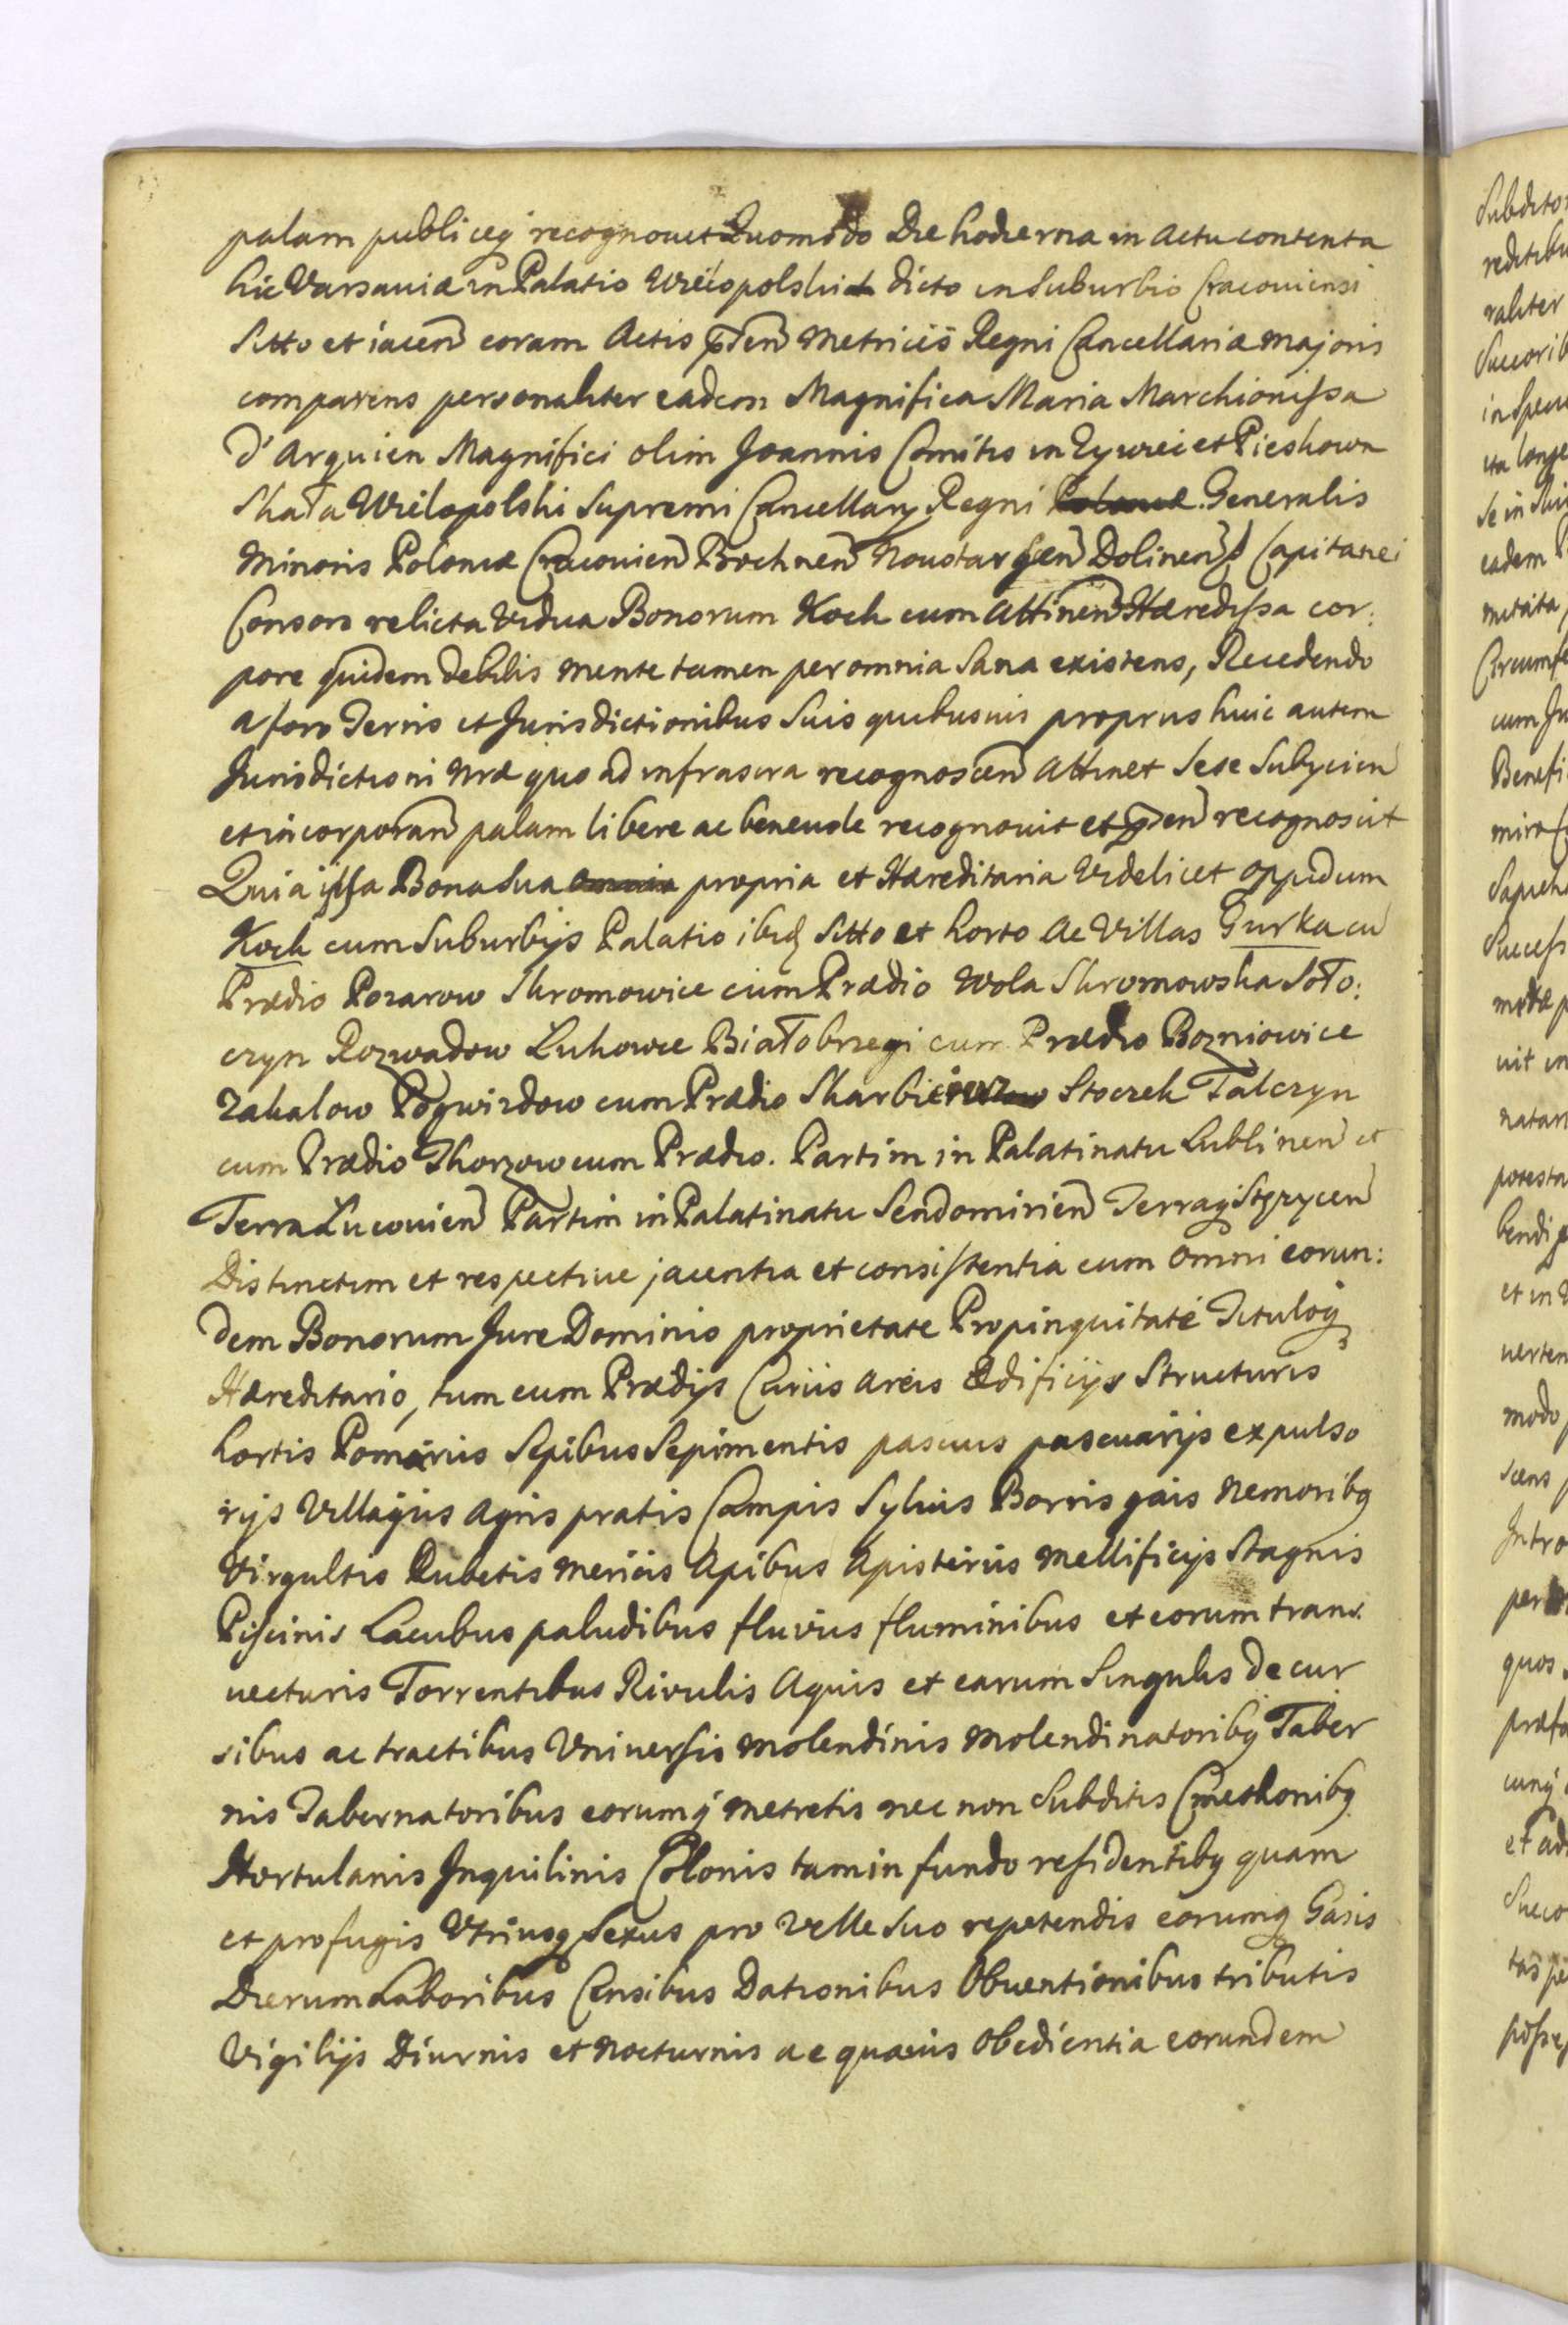 palam publiceq recognouit Quomodo Die hodierna in Actu contenta
hic Varsauiæ in Palatio Wielopolski dicto in Suburbio Cracouiensi
Sitto et iacen coram Actis pñten Metricis Regni Cancellariæ majoris
comparens personaliter eadem Magnifica Maria Marchionissa
d'Arquien Magnifici olim Joannis Comitis in Zywiec et Pieskowa
Skała Wielopolski Supremi Cancellarij Regni Poloniæ Generalis
Minoris Poloniæ Cracouien Bochnen Noustargen Dolinen Capitanei
Consors relicta Vidua Bonorum Kock cum Attinen Hæredissa cor:
pore quidem debilis mente tamen per omnia Sana existens, Recedendo
a foro Terris et Jurisdictionibus Suis quibusuis proprijs huic autem
Jurisdictioni Nræ quo ad infrascra recognoscen Attinet Sese Subijcien
et incorporan palam libere ac beneuole recognouit et pñten recognoscit
Quia ipsa Bona Sua omnia propria et Hæreditaria Videlicet oppidum
Kock cum Suburbijs Palatio ibiq Sitto et horto Ac Villas Gurka cu
Prædio Pozarow Skromowice cum Prædio Wola Skromowska Soło:
czyn Rozwadow Lukowce Białobrzegi cum Prædio Bozniowice
Zakalow Pogwizdow cum Prædio Skarbiciesz Stoczek Talczyn
cum Prædio Thorzow cum Prædio. Partim in Palatinatu Lublinen et
Terra Lucouien Partim in Palatinatu Sendomirien Terraq Stęzycen
Distinctim et respectiue jacentia et consistentia cum omni eorun:
dem Bonorum Jure Dominio proprietate Propinquitate Tituloq
Hæreditario, tum cum Prædijs Curiis areis Ædificijs Structuris
hortis Pomarijs Sepibus Sepimentis pascuis pascuarijs expulso
rijs Villagijs Agris pratis Campis Syluis Borris gais Nemoribq
Virgultis Rubetis Mericis Apibus Apisterijs Mellificijs Stagnis
Piscinis Lacubus paludibus fluvijs fluminibus et eorum trans
uecturis Torrentibus Rivulis Aquis et earum Singulis decur
sibus ac tractibus Vniuersis Molendinis Molendinatoribq Taber
nis Tabernatoribus eorumq metretis nec non Subditis Cmethonibq
Hortulanis Inquilinis Colonis tam in fundo residentibq quam
et profugis Vtriusq Sexus pro Velle Suo repetendis eorumq Gazis
Dierum Laboribus Censibus Dationibus Obuentionibus tributis
Vigilijs Diurnis et Nocturnis ac quauis Obedientia eorundem